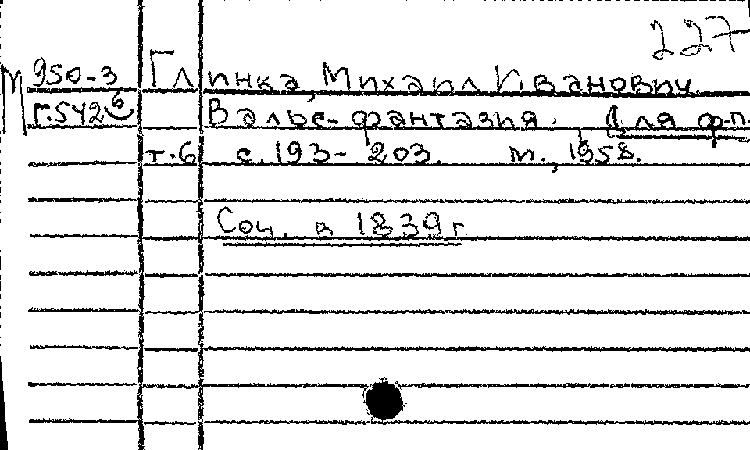 227
М 950-3 Глинка, Михаил Иванович
г.542б Вальс-фантазия. Для ф-п.
т.6 с.193-203. М., 1958.
Соч. в 1839 г